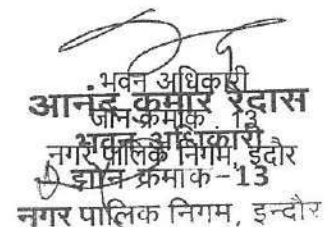 भवन अधिकारी
आनंद कुमार रैदास
जोन क्रमांक 13
भवन अधिकारी
नगर पालिक निगम, इंदौर
झोन क्रमांक-13
नगर पालिक निगम, इन्दौर